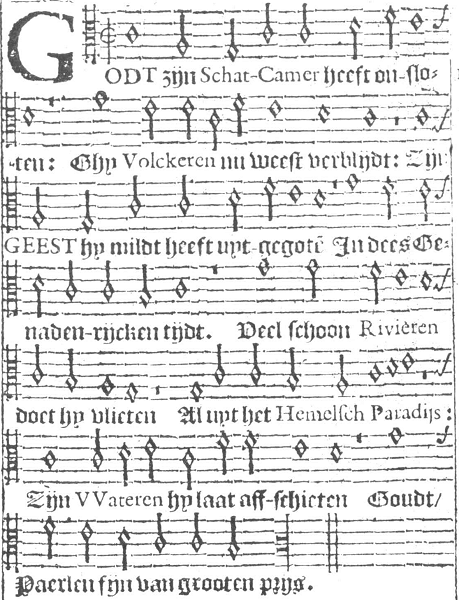 GODT zijn Schat-Camer heeft on-slo-
ten: Ghy Volckeren nu weest verblijdt: Zijn
GEEST hy mildt heeft uyt-gegotē In dees Ge-
naden-rijcken tijdt. Veel schoon Rivieren
doet hy vlieten Al uyt het Hemelsch Paradijs:
Zijn VVateren hy laat aff-schieten Goudt/
Paerlen fijn van grooten prijs.